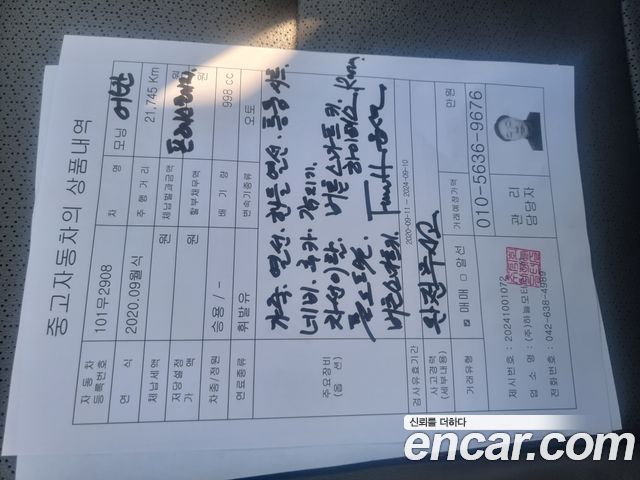 중고자동차의 상품내역
자동차 등록번호 101우2908 차 명 모닝 어반
연 식 2020.09월식 주행거리 21,745 Km
체납세액 원 체납벌과금액 원
저당설정 가 액 원 할부채무액 원
차종/정원 승용 / - 배 기 량 998 cc
연료종류 휘발유 변속기종류 오토
주요장비 (옵션)
가죽. 열선. 핸들 열선. 통풍시트.
네비. 후카. 감지기.
차선이탈. 버튼 스마트 키.
블루투스. 하이패스 Rm
완전무사고
검사유효기간 2020-09-11 ~ 2024-09-10
사고경력 (세부내용)
거래유형 매매 □ 알선 거래예정가격 만원
제시번호 : 20241001072
업 소 명 : (주)하늘모터
전화번호 : 042-638-4989
관 리 담당자 010-5636-9676
신뢰를 더하다
encar.com